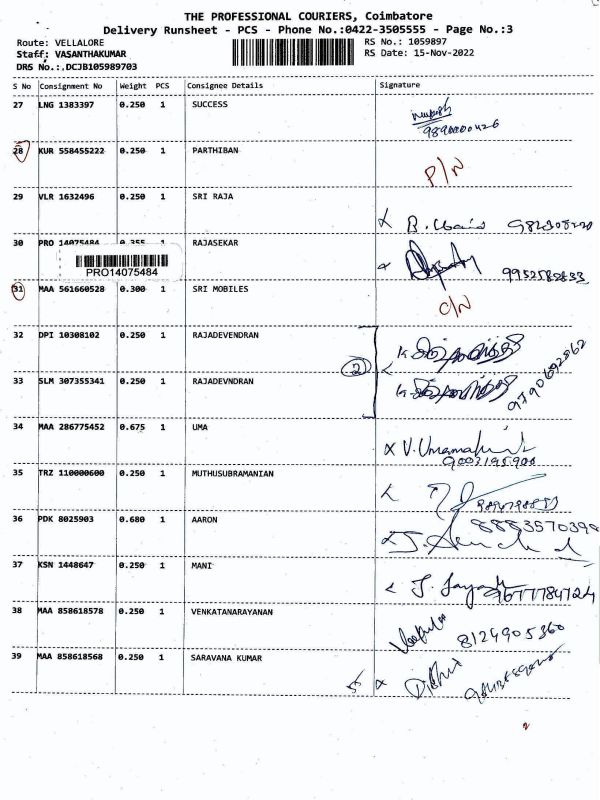 THE PROFESSIONAL COURIERS, Coimbatore
Delivery Runsheet - PCS - Phone No.:0422-3505555 - Page No.:3
Route: VELLALORE RS No.: 1059897
Staff: VASANTHAKUMAR RS Date: 15-Nov-2022
DRS No.:.DCJB105989703
S No Consignment No Weight PCS Consignee Details Signature
27 LNG 1383397 0.250 1 SUCCESS
28 KUR 558455222 0.250 1 PARTHIBAN P/N
29 VLR 1632496 0.250 1 SRI RAJA
30 PRO 14075484 0.355 1 RAJASEKAR
PRO14075484
9952582833
31 MAA 561660528 0.300 1 SRI MOBILES C/N
32 DPI 10308102 0.250 1 RAJADEVENDRAN
2
33 SLM 307355341 0.250 1 RAJADEVNDRAN
9790692862
34 MAA 286775452 0.675 1 UMA
9003195900
35 TRZ 110000600 0.250 1 MUTHUSUBRAMANIAN
36 PDK 8025903 0.680 1 AARON 8883570398
37 KSN 1448647 0.250 1 MANI
9677784724
38 MAA 858618578 0.250 1 VENKATANARAYANAN 8124905360
39 MAA 858618568 0.250 1 SARAVANA KUMAR